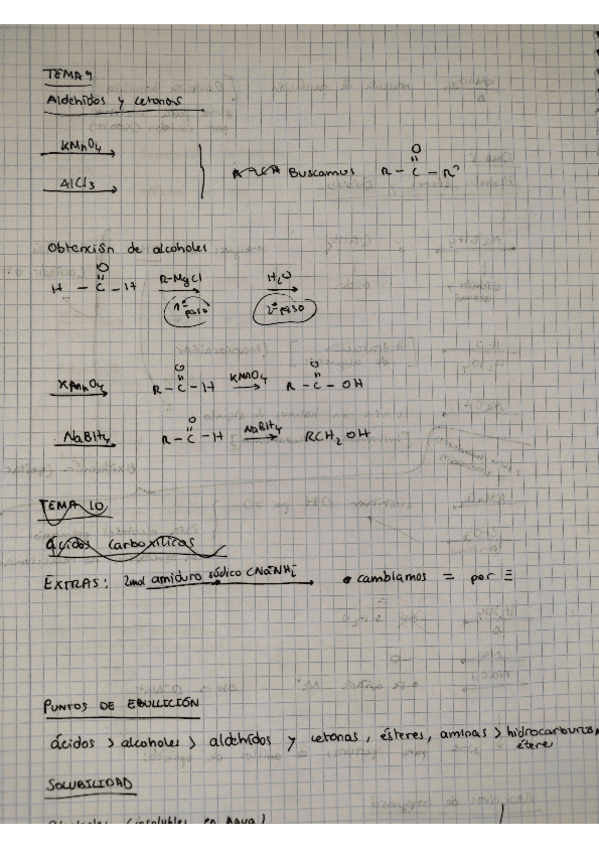 TEMA 9
Aldehídos y cetonas
KMnO4
AlCl3
Buscamos R - C - R'
O
Obtención de alcoholes
O
H - C - H R-MgCl H2O
1er paso 2º paso
O O
KMnO4 R - C - H KMnO4 R - C - OH
O
NaBH4 R - C - H NaBH4 RCH2OH
TEMA 10
ácidos carboxílicos
EXTRAS: 2mol amiduro sódico CNaNH2 • cambiamos = por ≡
PUNTOS DE EBULLICIÓN
ácidos > alcoholes > aldehídos y cetonas, ésteres, aminas > hidrocarburos,
éteres
SOLUBILIDAD